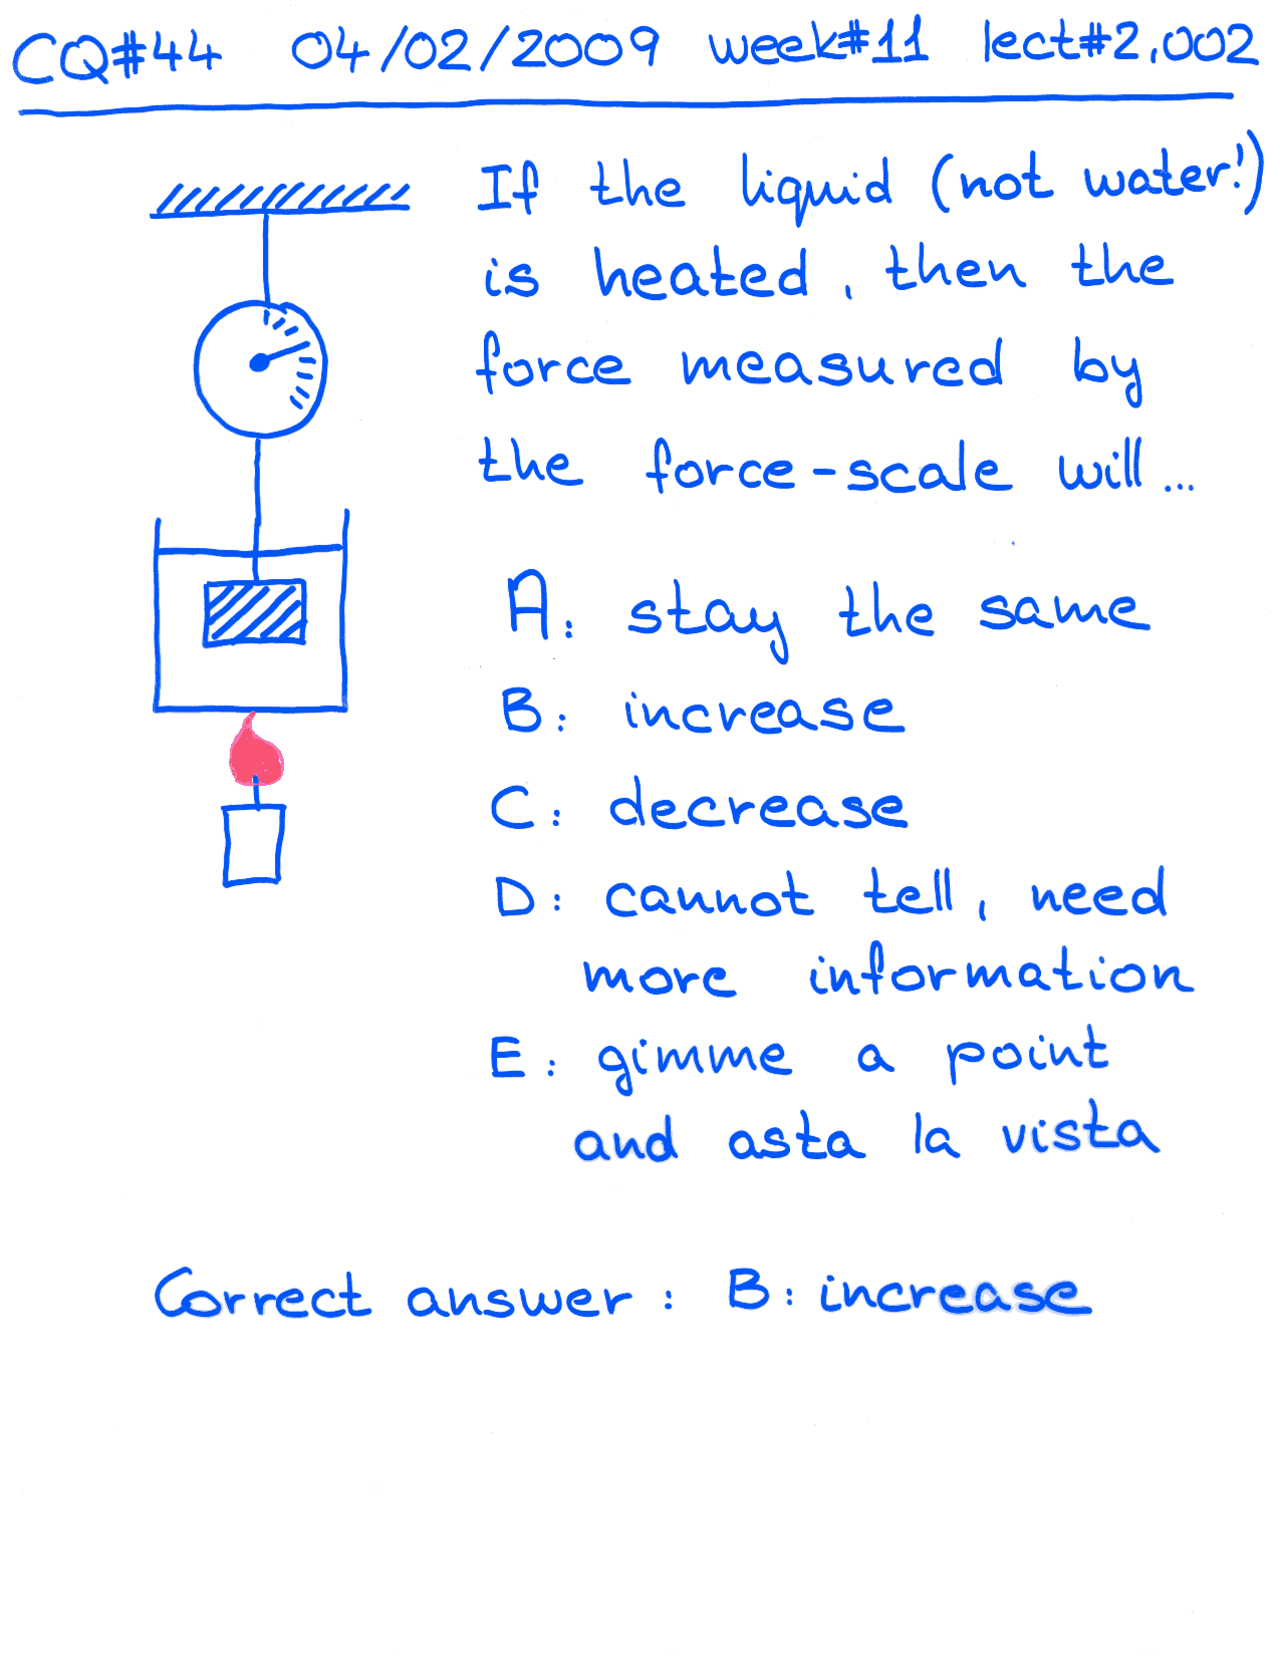 CQ#44 04/02/2009 week#11 lect#2,002
If the liquid (not water!)
is heated, then the
force measured by
the force-scale will...
A: stay the same
B: increase
C: decrease
D: cannot tell, need
more information
E: gimme a point
and asta la vista
Correct answer: B: increase